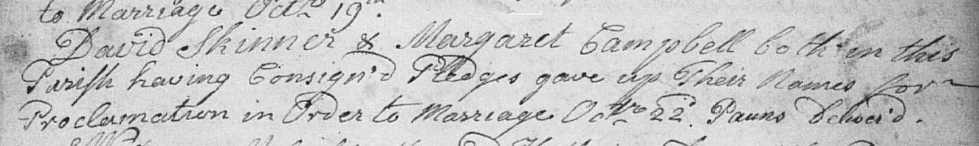 to Marriage Octr 19th.
David Skinner & Margaret Campbell both in this
Parish having Consign'd Pledges gave up Their Names for
Proclamation in Order to Marriage Octre 22d. Pauns Deliver'd.